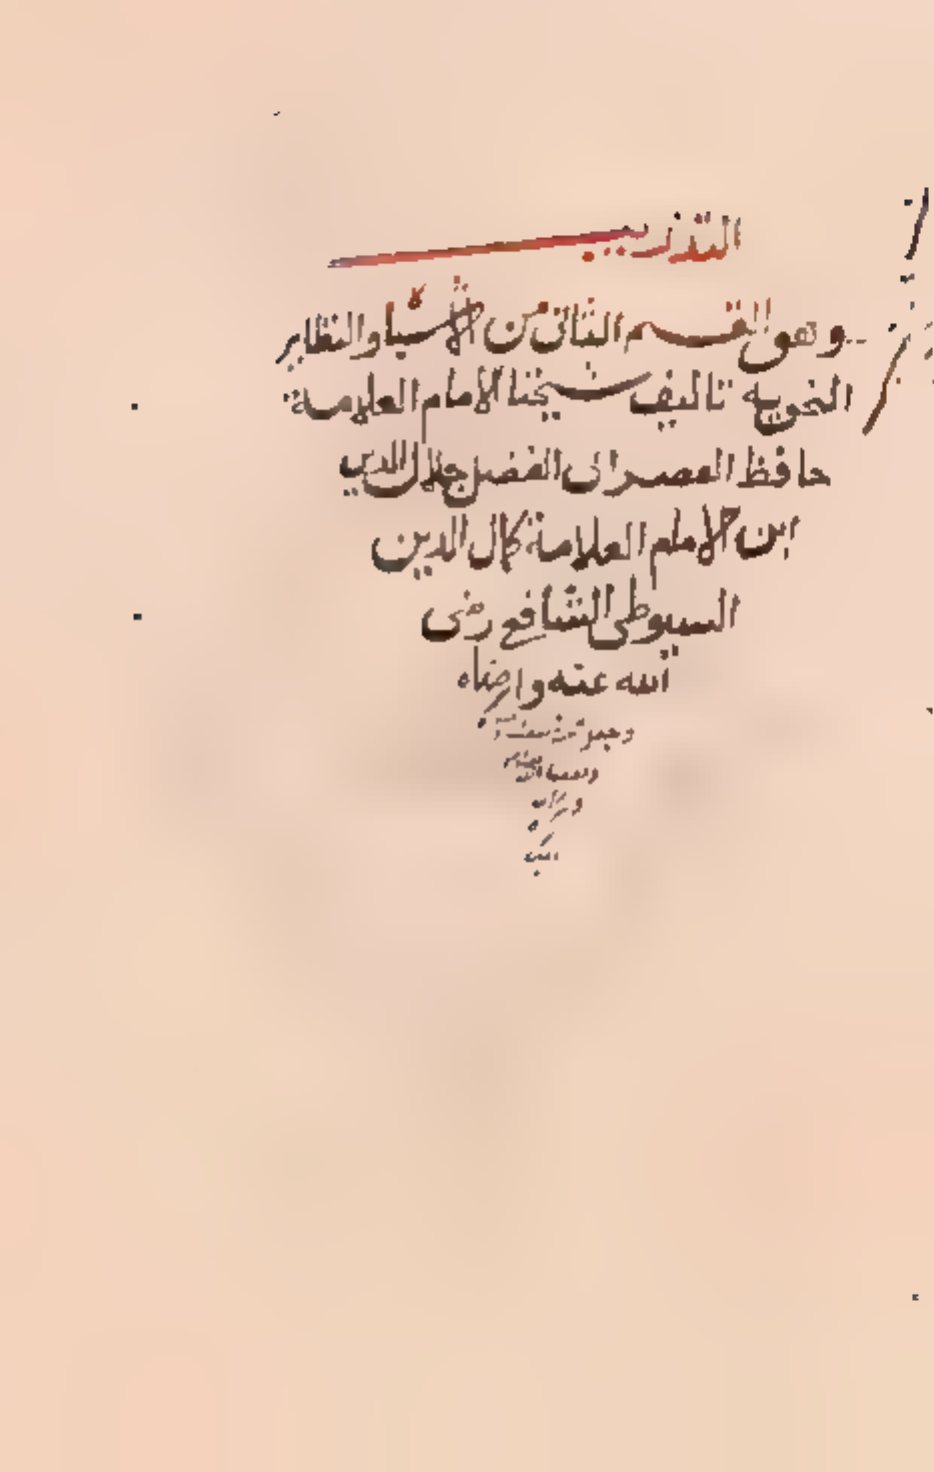 التدريب
وهو القسم الثاني من الأشباه والنظاير
النحويه تاليف شيخنا الامام العلامة
حافظ العصر ابى الفضل جلال الدين
ابن الامام العلامة كمال الدين
السيوطى الشافعى رضى
الله عنه وارضاه